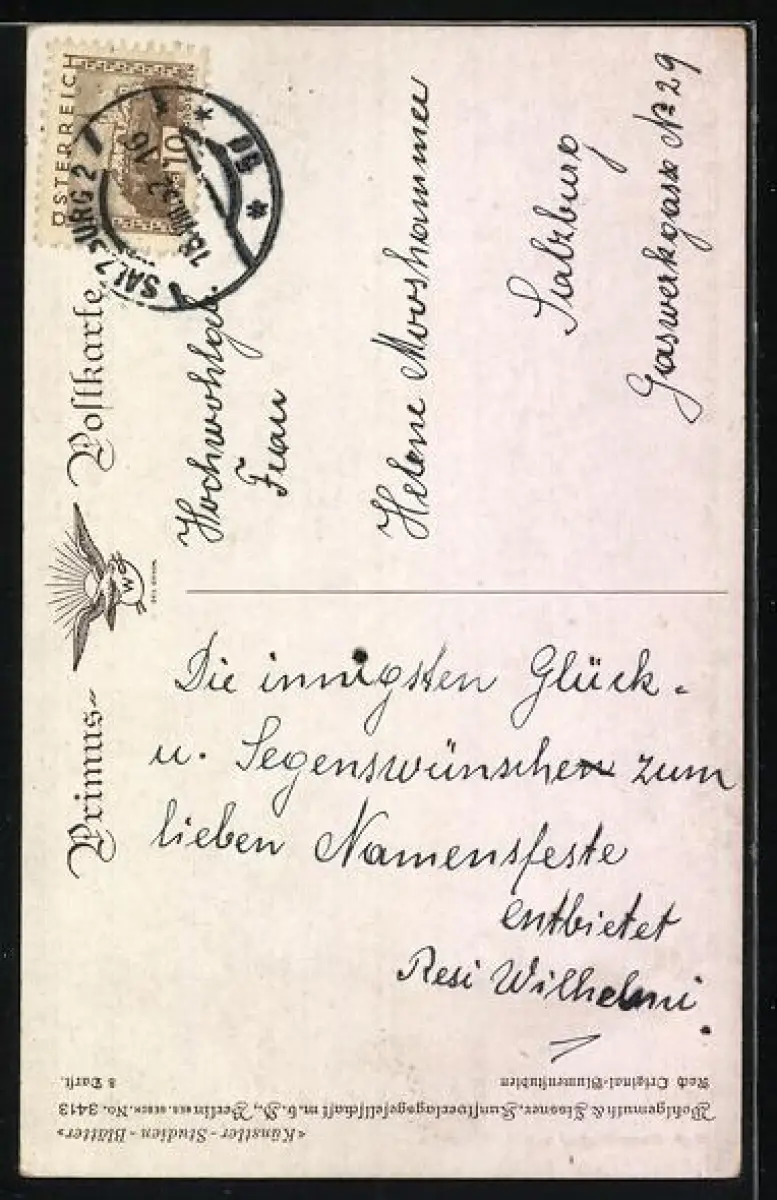 ÖSTERREICH
10
SALZBURG 2
18.VIII.32.16
* 9b *
Primus- Postkarte
W
Hochwohlgeb.
Frau
Helene Mooshammer
Salzburg
Gaswerkgasse No 29
Die innigsten Glück-
u. Segenswünsche zum
lieben Namensfeste
entbietet
Resi Wilhelmi
«Künstler-Studien-Blätter»
Wohlgemuth & Lissner, Kunstverlagsgesellschaft m.b.H., Berlin No. 3413
Rech Original-Blumenstudien
8 Darst.